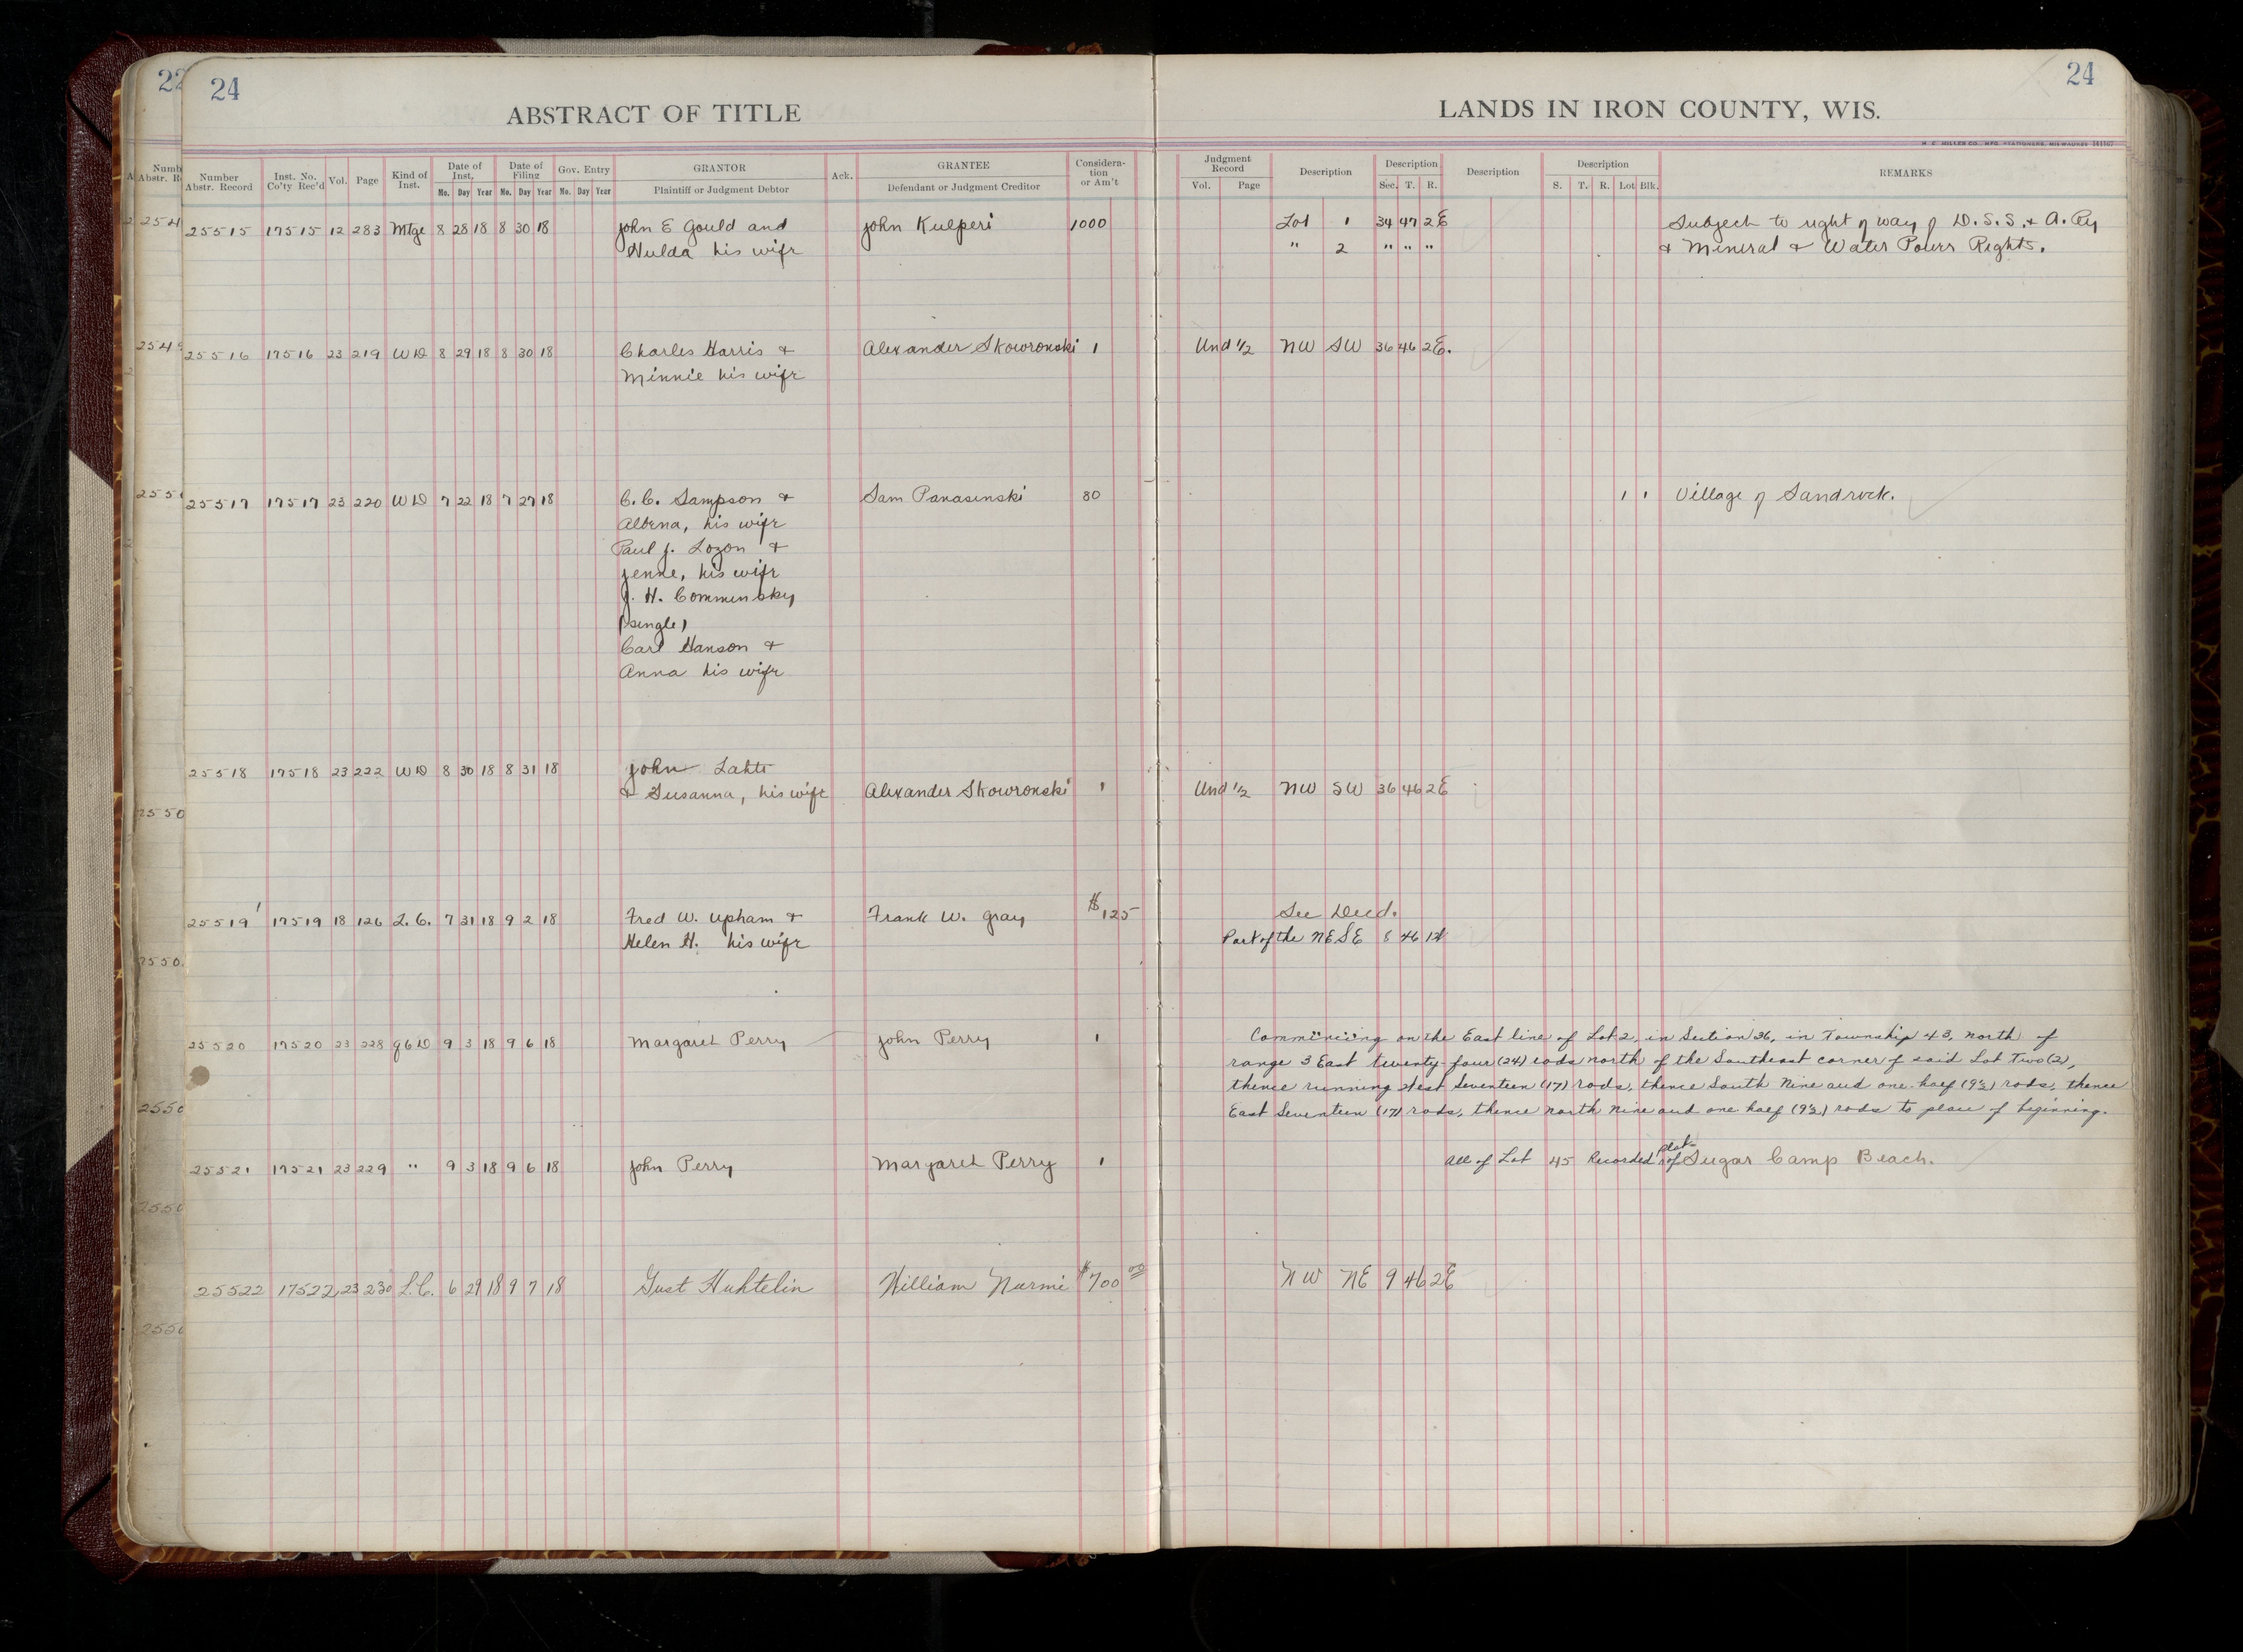 22
24
ABSTRACT OF TITLE
Number Abstr. Record | Inst. No. Co'ty Rec'd | Vol. | Page | Kind of Inst. | Date of Inst. Mo. Day Year | Date of Filing Mo. Day Year | Gov. Entry Mo. Day Year | GRANTOR Plaintiff or Judgment Debtor | Ack. | GRANTEE Defendant or Judgment Creditor | Consideration or Am't
24
LANDS IN IRON COUNTY, WIS.
Judgment Record Vol. Page | Description | Description Sec. T. R. | Description | Description S. T. R. Lot Blk. | REMARKS
25515 17515 12 283 Mtge 8 28 18 8 30 18 John E Gould and John Kulperi 1000 Lot 1 34 47 2E Subject to right of way of D.S.S. & A. Ry
Hulda his wife " 2 " " " & Mineral & Water Power Rights.
25516 17516 23 219 WD 8 29 18 8 30 18 Charles Harris & Alexander Skowronski 1 Und 1/2 NW SW 36 46 2E.
Minnie his wife
25517 17517 23 220 WD 7 22 18 7 27 18 C. C. Sampson & Sam Panasinski 80 1 1 Village of Sandrock.
Albena, his wife
Paul J. Lozon &
Jenne, his wife
J. H. Comminsky
(single)
Carl Hanson &
Anna his wife
25518 17518 23 222 WD 8 30 18 8 31 18 John Lahti
& Susanna, his wife Alexander Skowronski 1 Und 1/2 NW SW 36 46 2E
25519 17519 18 126 L.C. 7 31 18 9 2 18 Fred W. Upham & Frank W. Gray $125 See Deed.
Helen H. his wife Part of the NE SE 8 46
25520 17520 23 228 QCD 9 3 18 9 6 18 Margaret Perry John Perry 1 Commencing on the East line of Lot 2, in Section 36, in Township 43, North of
range 3 East twenty-four (24) rods north of the Southeast corner of said Lot Two (2),
thence running West Seventeen (17) rods, thence South Nine and one-half (9½) rods, thence
East Seventeen (17) rods, thence north nine and one half (9½) rods to place of beginning.
25521 17521 23 229 " 9 3 18 9 6 18 John Perry Margaret Perry 1 All of Lot 45 Recorded plat of Sugar Camp Beach.
25522 17522 23 230 L.C. 6 29 18 9 7 18 Gust Huhtelin William Nurmi $700.00 NW NE 9 46 2E